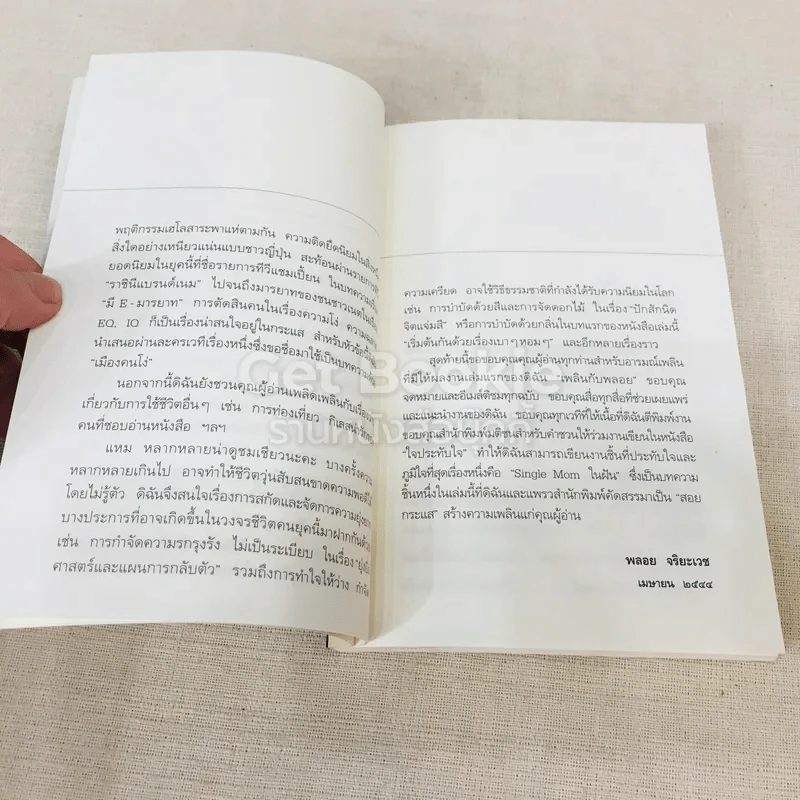 พฤติกรรมเฮโลสาระพาแห่ตามกัน ความติดยึดนิยมใน
สิ่งใดอย่างเหนียวแน่นแบบชาวญี่ปุ่น สะท้อนผ่านรายการ
ยอดนิยมในยุคนี้ที่ชื่อรายการทีวีแชมเปี้ยน ในบทความ
“ราชินีแบรนด์เนม” ไปจนถึงมารยาทของชนชาวเนต
“มี E-มารยาท” การตัดสินคนในเรื่องความโง่ ความ
EQ, IQ ก็เป็นเรื่องน่าสนใจอยู่ในกระแส สำหรับหัวข้อนี้
นำเสนอผ่านละครเวทีเรื่องหนึ่งซึ่งขอชื่อมาใช้เป็นบทความ
“เมืองคนโง่”
นอกจากนี้ดิฉันยังชวนคุณผู้อ่านเพลิดเพลินกับเรื่อง
เกี่ยวกับการใช้ชีวิตอื่นๆ เช่น การท่องเที่ยว กิเลสน่ารัก
คนที่ชอบอ่านหนังสือ ฯลฯ
แหม หลากหลายน่าดูชมเชียวนะคะ บางครั้งความ
หลากหลายเกินไป อาจทำให้ชีวิตวุ่นสับสนขาดความพอดี
โดยไม่รู้ตัว ดิฉันจึงสนใจเรื่องการสกัดและจัดการความยุ่งยาก
บางประการที่อาจเกิดขึ้นในวงจรชีวิตคนยุคนี้มาฝากกันด้วย
เช่น การกำจัดความรกรุงรัง ไม่เป็นระเบียบ ในเรื่อง
ศาสตร์และแผนการกลับตัว” รวมถึงการทำใจให้ว่าง กำจัด
ความเครียด อาจใช้วิธีธรรมชาติที่กำลังได้รับความนิยมในโลก
เช่น การบำบัดด้วยสีและการจัดดอกไม้ ในเรื่อง “ปักสักนิด
จิตแจ่มสี” หรือการบำบัดด้วยกลิ่นในบทแรกของหนังสือเล่มนี้
“เริ่มต้นกันด้วยเรื่องเบาๆหอมๆ” และอีกหลายเรื่องราว
สุดท้ายนี้ขอขอบคุณคุณผู้อ่านทุกท่านสำหรับอารมณ์เพลิน
ที่มีให้ผลงานเล่มแรกของดิฉัน “เพลินกับพลอย” ขอบคุณ
จดหมายและอีเมล์ติชมทุกฉบับ ขอบคุณสื่อทุกสื่อที่ช่วยเผยแพร่
และแนะนำงานของดิฉัน ขอบคุณทุกเวทีที่ให้เนื้อที่ดิฉันตีพิมพ์งาน
ขอบคุณสำนักพิมพ์มติชนสำหรับคำชวนให้ร่วมงานเขียนในหนังสือ
“ใจประทับใจ” ทำให้ดิฉันสามารถเขียนงานชิ้นที่ประทับใจและ
ภูมิใจที่สุดเรื่องหนึ่งคือ “Single Mom ในฝัน” ซึ่งเป็นบทความ
ชิ้นหนึ่งในเล่มนี้ที่ดิฉันและแพรวสำนักพิมพ์คัดสรรมาเป็น “สอย
กระแส” สร้างความเพลินแก่คุณผู้อ่าน
พลอย จริยะเวช
เมษายน ๒๕๔๔
Get Bookie